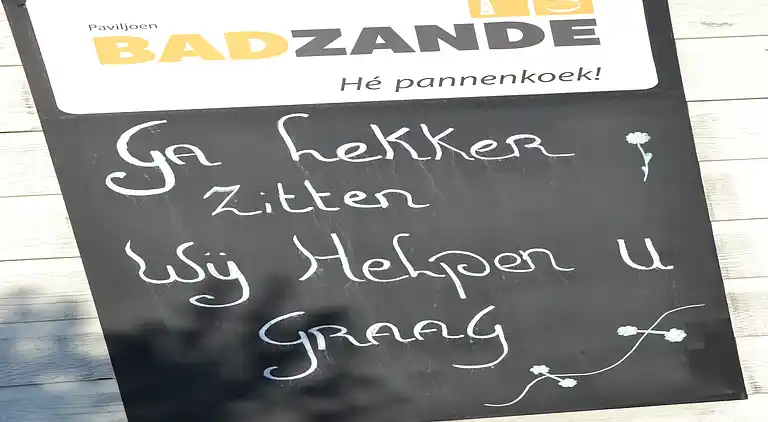 Paviljoen
BADZANDE
Hé pannenkoek!
Ga hekker
zitten
Wij Helpen u
GRAAG